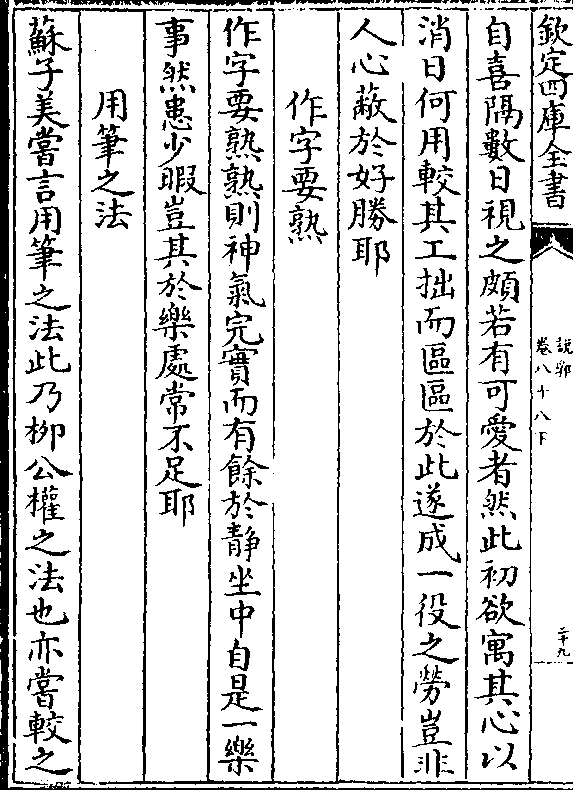 欽定四庫全書
說郛
卷八十八下
二十九
自喜隔數日視之頗若有可愛者然此初欲寓其心以
消日何用較其工拙而區區於此遂成一役之勞豈非
人心蔽於好勝耶
作字要熟
作字要熟熟則神氣完實而有餘於靜坐中自是一樂
事然患少暇豈其於樂處常不足耶
用筆之法
蘇子美嘗言用筆之法此乃柳公權之法也亦嘗較之